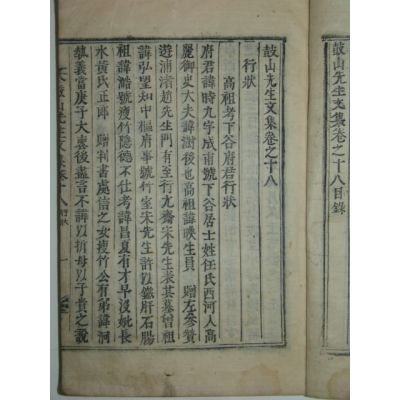 鼓山先生文集卷之十八目錄
鼓山先生文集卷之十八
行狀
高祖考下谷府君行狀
府君諱時九字成甫號下谷居士姓任氏西河人高
麗御史大夫諱澍後也高祖諱 生員 贈左參贊
遊浦渚趙先生門有至行尤齋宋先生表其墓曾祖
諱弘望知中樞府事號竹室宋先生許以鐵肝石腸
祖諱澔號瘦竹隱德不仕考諱昌夏有才早沒妣長
水黃氏正郎 贈判書處信之女瘦竹公有弟諱泂
執義當庚子大喪後盡言不諱以折母以子貴之說
鼓山先生文集卷十八 行狀 一